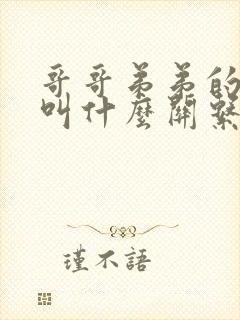 哥哥弟弟的
叫什麼關繫
瑾不語